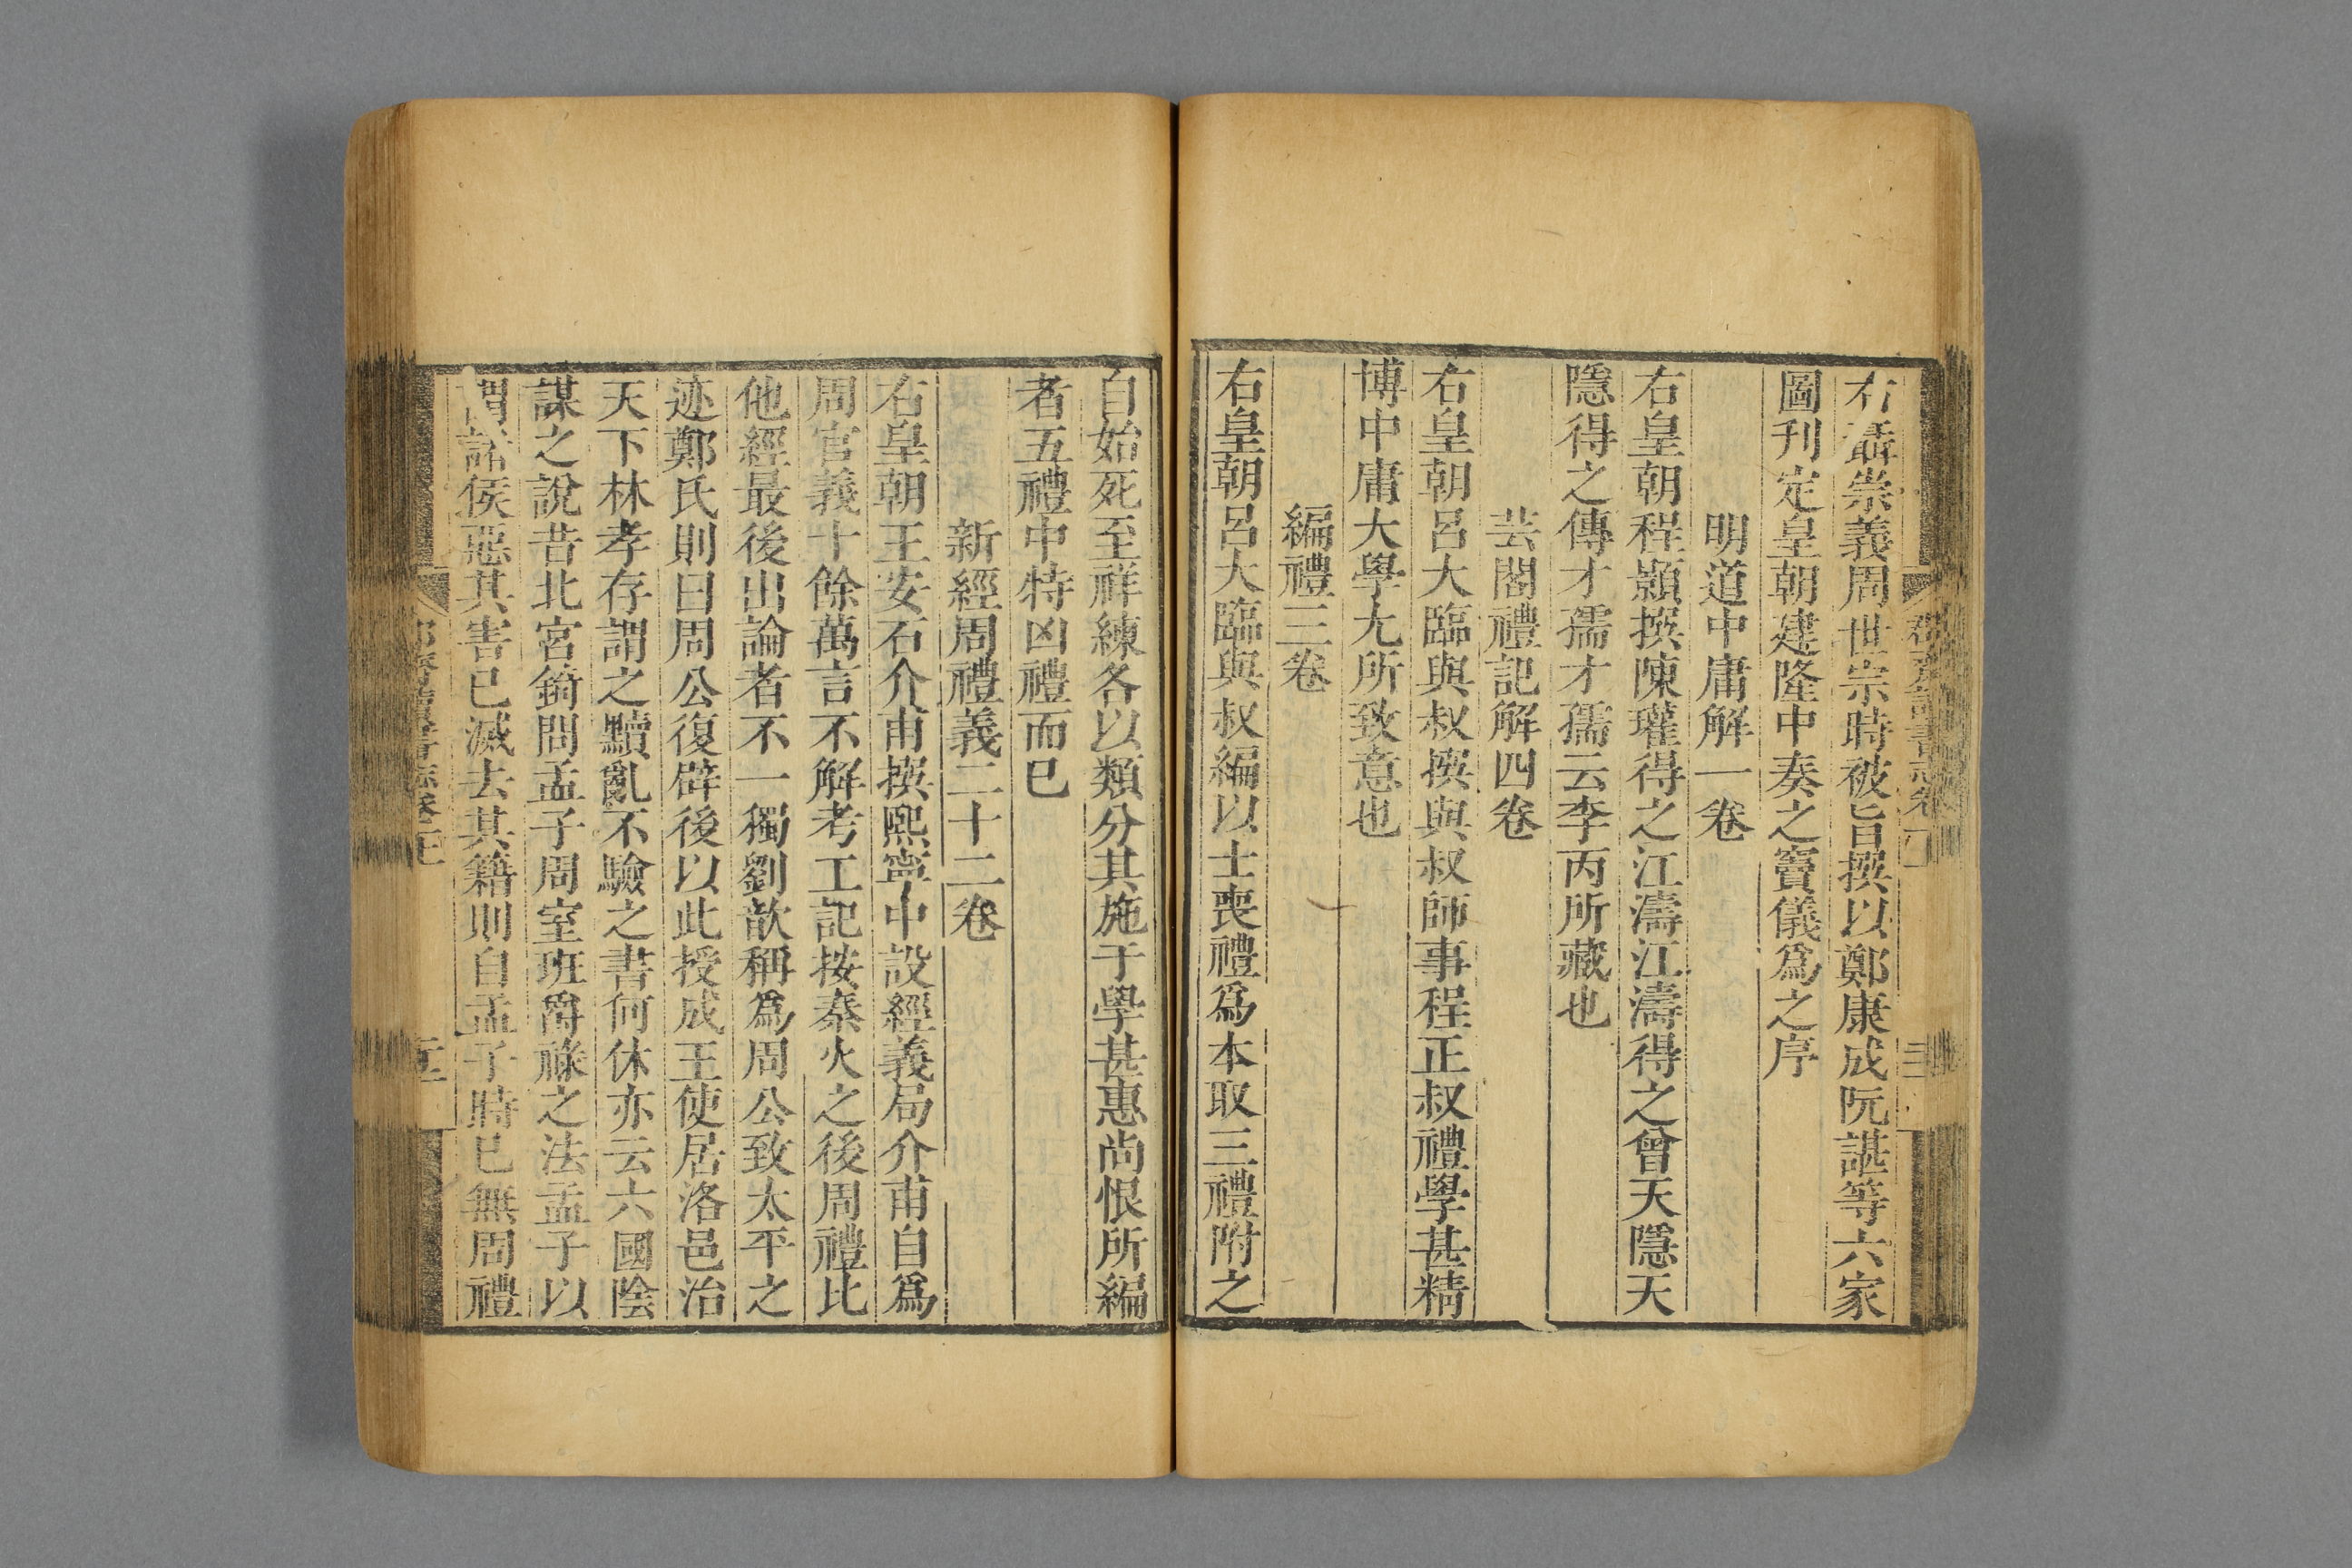 右聶崇義周世宗時被旨撰以鄭康成阮諶等六家
圖刊定皇朝建隆中奏之竇儀爲之序
明道中庸解一卷
右皇朝程顥撰陳瓘得之江濤江濤得之曾天隱天
隱得之傳才孺才孺云李丙所藏也
芸閣禮記解四卷
右皇朝呂大臨與叔撰與叔師事程正叔禮學甚精
博中庸大學尤所致意也
編禮三卷
右皇朝呂大臨與叔編以士喪禮爲本取三禮附之
自始死至祥練各以類分其施于學甚惠尚恨所編
者五禮中特凶禮而已
新經周禮義二十二卷
右皇朝王安石介甫撰熙寧中設經義局介甫自爲
周官義十餘萬言不解考工記按秦火之後周禮比
他經最後出論者不一獨劉歆稱爲周公致太平之
迹鄭氏則曰周公復辟後以此授成王使居洛邑治
天下林孝存謂之黷亂不驗之書何休亦云六國陰
謀之說昔北宮錡問孟子周室班爵祿之法孟子以
謂諸侯惡其害己滅去其籍則自孟子時已無周禮